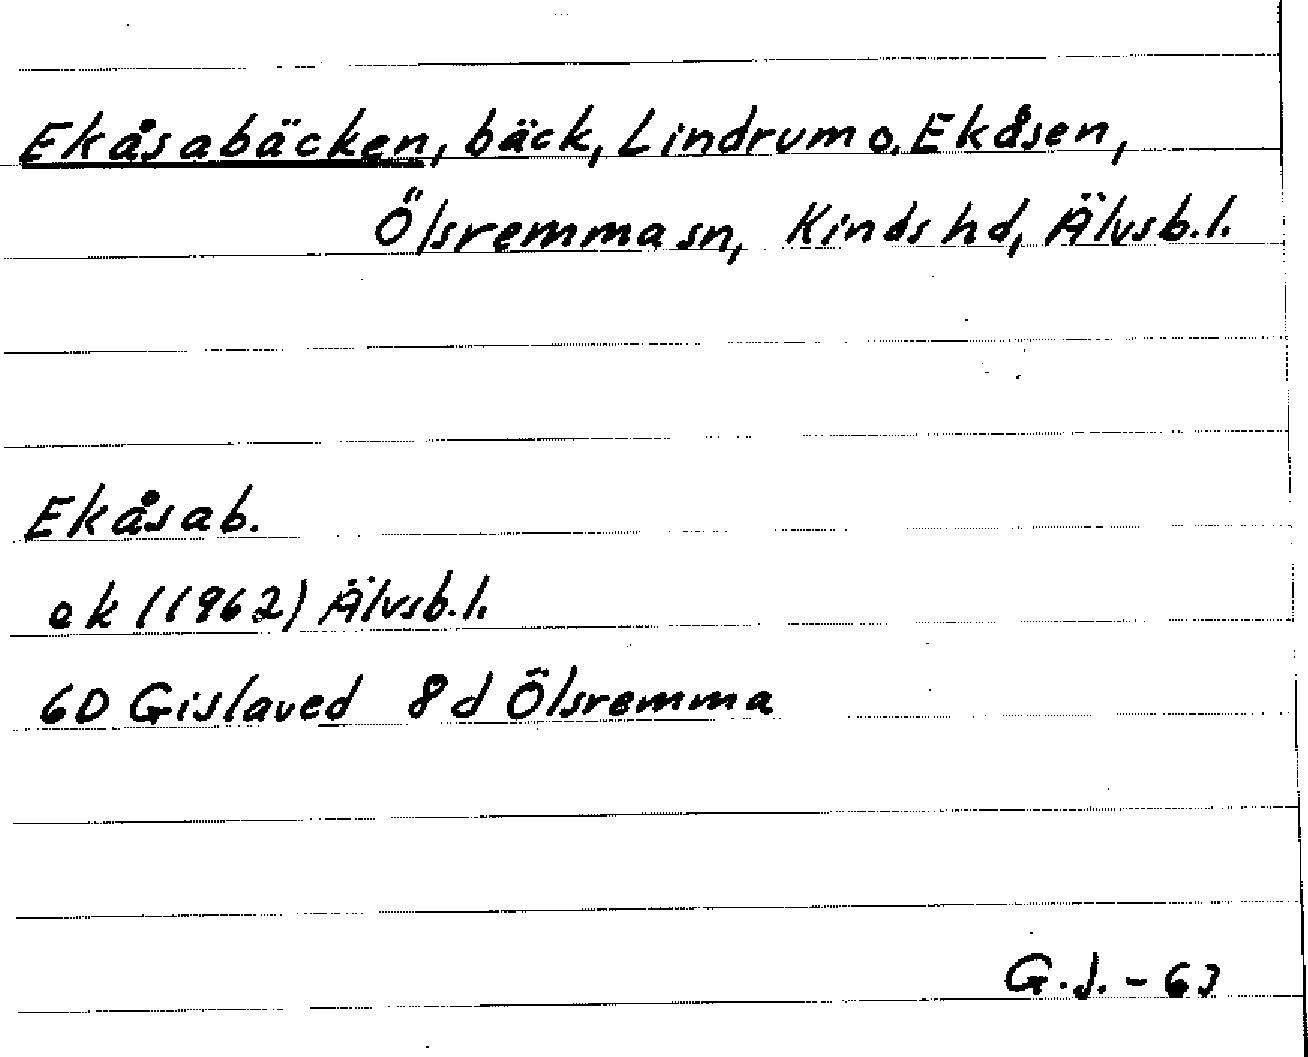 Ekåsabäcken, bäck, Lindrum o. Ekåsen,
Ölsremma sn, Kinds hd, Älvsb.l.
Ekåsab.
ek (1962) Älvsb.l.
6D Gislaved 8d Ölsremma
G.J. - 63